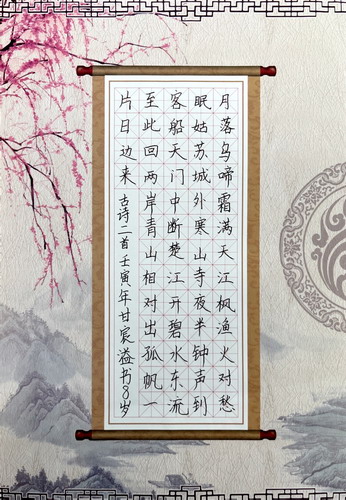 月落乌啼霜满天江枫渔火对愁
眠姑苏城外寒山寺夜半钟声到
客船天门中断楚江开碧水东流
至此回两岸青山相对出孤帆一
片日边来 古诗二首壬寅年甘宸溢书8岁